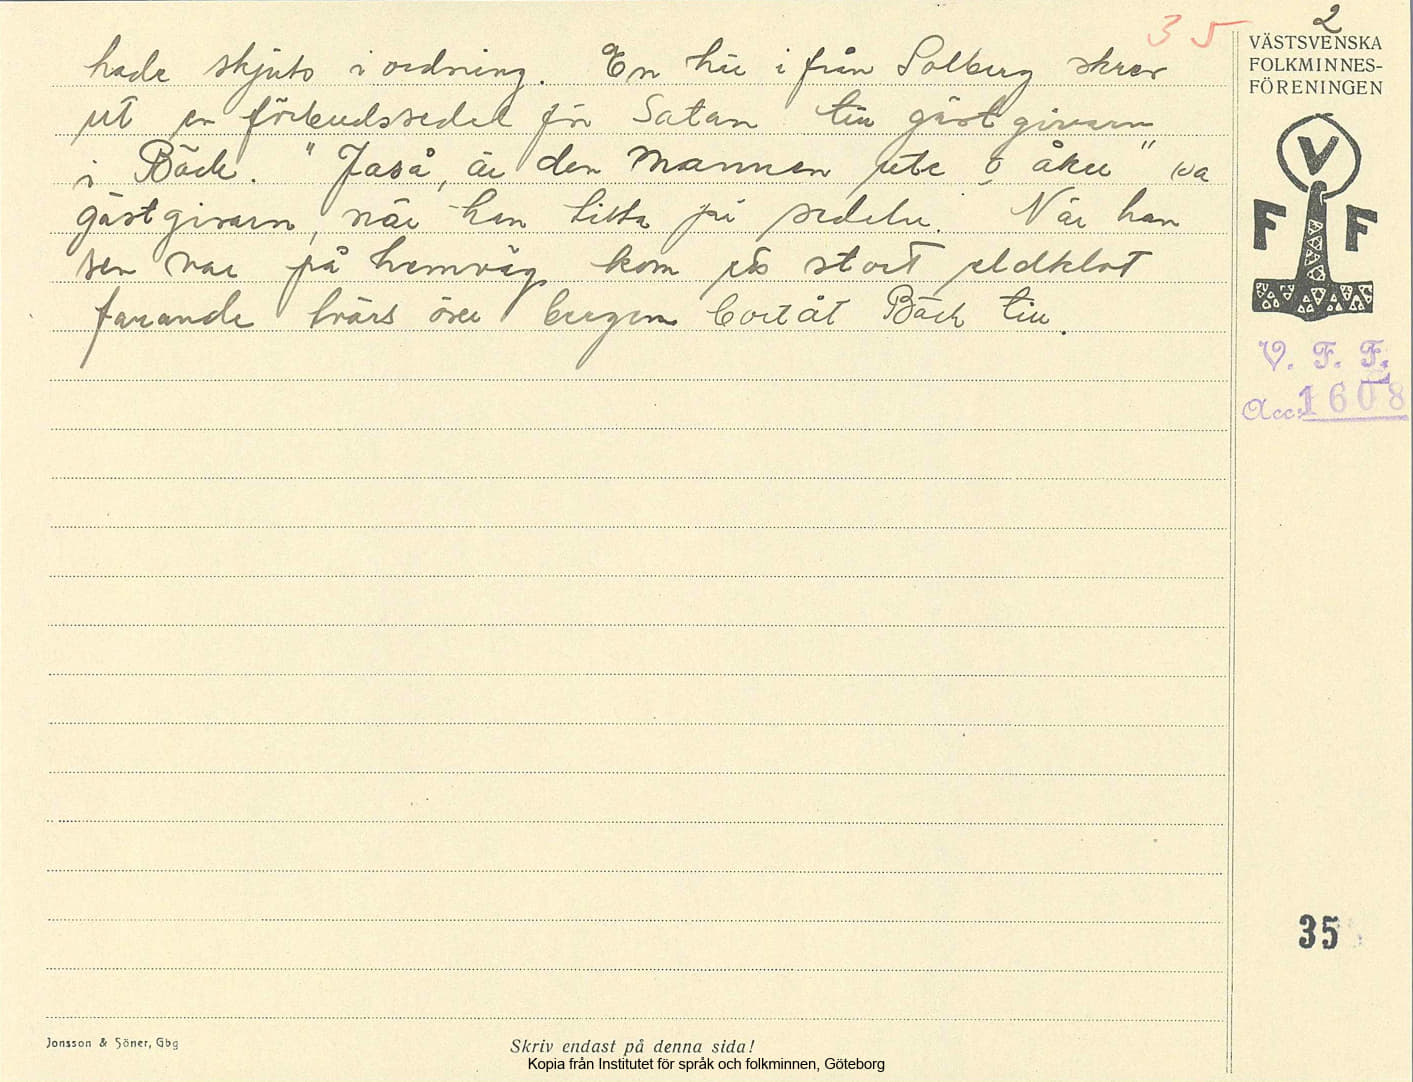 35
2
VÄSTSVENSKA
FOLKMINNES-
FÖRENINGEN
hade skjuts i ordning. En här ifrån Solberg skrev
ut en förbudssedel för Satan till gästgivarn
i Bäck. "Jaså, är den mannen ute å åker" sa
gästgivarn, när han titta på sedeln. När han
sen var på hemväg kom ett stort eldklot
farande tvärs över bergen bortåt Bäck till.
V
F F
V. F. F.
Acc: 1608
35
Jonsson & Söner, Gbg
Skriv endast på denna sida!
Kopia från Institutet för språk och folkminnen, Göteborg